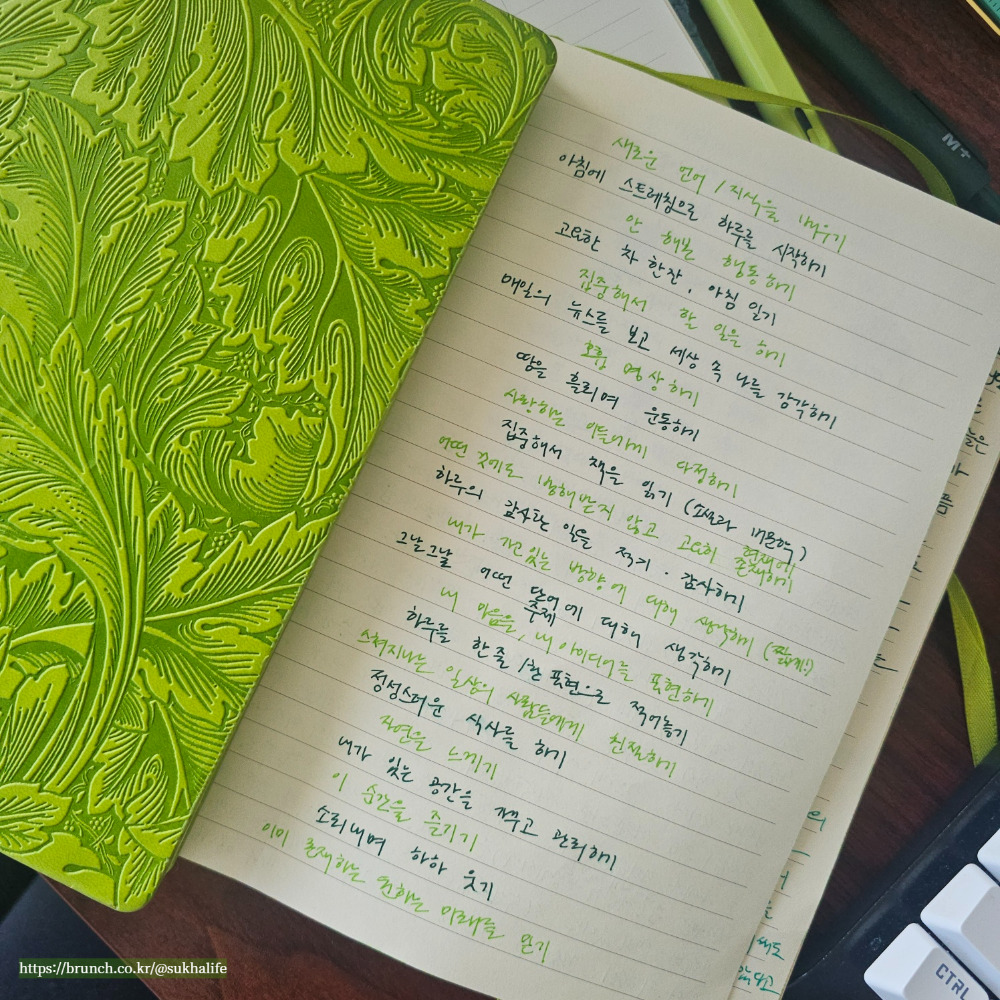 새로운 언어 / 지식을 배우기
아침에 스트레칭으로 하루를 시작하기
안 해본 행동하기
고요한 차 한잔, 아침 일기
집중해서 할 일을 하기
매일의 뉴스를 보고 세상 속 나를 감각하기
호흡 명상하기
땀을 흘리며 운동하기
사랑하는 이들에게 다정하기
집중해서 책을 읽기 (소설과 비문학)
어떤 것에도 방해받지 않고 고요히 현재에 존재하기
하루의 감사한 일을 적기 · 감사하기
내가 가고 있는 방향에 대해 생각하기 (짧게!)
그날그날 어떤 단어에 대해 생각하기
주제
내 마음을, 내 아이디어를 표현하기
하루를 한 줄 / 한 표현으로 적어놓기
스쳐지나는 일상의 사람들에게 친절하기
정성스러운 식사를 하기
자연을 느끼기
내가 있는 공간을 가꾸고 관리하기
이 순간을 즐기기
소리내며 하하 웃기
이미 존재하는 원하는 미래를 믿기
M+
CTRL
https://brunch.co.kr/@sukhalife